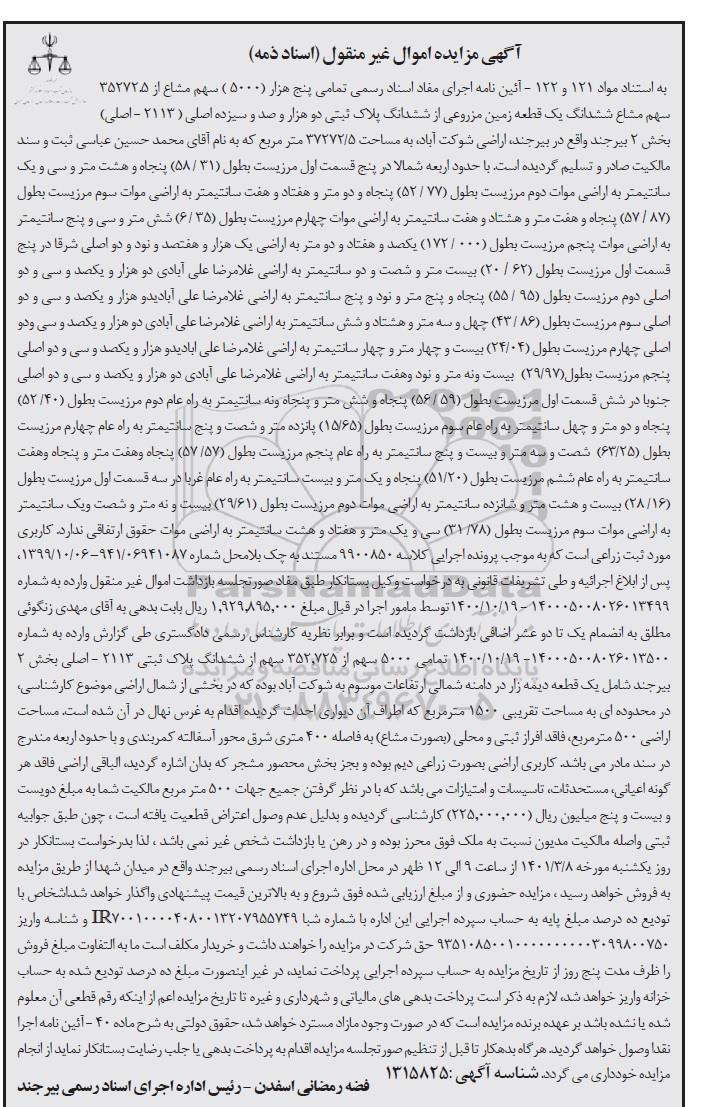 آگهی مزایده اموال غیر منقول (اسناد ذمه)
به استناد مواد ۱۲۱ و ۱۲۲ - آئین نامه اجرای مفاد اسناد رسمی تمامی پنج هزار (۵۰۰۰ ) سهم مشاع از ۳۵۲۷۲۵
سهم مشاع ششدانگ یک قطعه زمین مزروعی از ششدانگ پلاک ثبتی دو هزار و صد و سیزده اصلی ( ۲۱۱۳ - اصلی)
بخش ۲ بیرجند واقع در بیرجند، اراضی شوکت آباد، به مساحت ۳۷۲۷۲/۵ متر مربع که به نام آقای محمد حسین عباسی ثبت و سند
مالکیت صادر و تسلیم گردیده است. با حدود اربعه شمالا در پنج قسمت اول مرزیست بطول (۳۱ / ۵۸) پنجاه و هشت متر و سی و یک
سانتیمتر به اراضی موات دوم مرزیست بطول (۷۷ / ۵۲) پنجاه و دو متر و هفتاد و هفت سانتیمتر به اراضی موات سوم مرزیست بطول
(۸۷ / ۵۷) پنجاه و هفت متر و هشتاد و هفت سانتیمتر به اراضی موات چهارم مرزیست بطول (۳۵ / ۶) شش متر و سی و پنج سانتیمتر
به اراضی موات پنجم مرزیست بطول (۰۰۰ / ۱۷۲) یکصد و هفتاد و دو متر به اراضی یک هزار و هفتصد و نود و دو اصلی شرقا در پنج
قسمت اول مرزیست بطول (۶۲ / ۲۰) بیست متر و شصت و دو سانتیمتر به اراضی غلامرضا علی آبادی دو هزار و یکصد و سی و دو
اصلی دوم مرزیست بطول (۹۵ / ۵۵) پنجاه و پنج متر و نود و پنج سانتیمتر به اراضی غلامرضا علی آبادیدو هزار و یکصد و سی و دو
اصلی سوم مرزیست بطول (۸۶ / ۴۳) چهل و سه متر و هشتاد و شش سانتیمتر به اراضی غلامرضا علی آبادی دو هزار و یکصد و سی ودو
اصلی چهارم مرزیست بطول (۲۴/۰۴) بیست و چهار متر و چهار سانتیمتر به اراضی غلامرضا علی ابادیدو هزار و یکصد و سی و دو اصلی
پنجم مرزیست بطول(۲۹/۹۷) بیست ونه متر و نود وهفت سانتیمتر به اراضی غلامرضا علی آبادی دو هزار و یکصد و سی و دو اصلی
جنوبا در شش قسمت اول مرزیست بطول (۵۹ / ۵۶) پنجاه و شش متر و پنجاه ونه سانتیمتر به راه عام دوم مرزیست بطول (۴۰ / ۵۲)
پنجاه و دو متر و چهل سانتیمتر به راه عام سوم مرزیست بطول (۱۵/۶۵) پانزده متر و شصت و پنج سانتیمتر به راه عام چهارم مرزیست
بطول (۶۳/۲۵) شصت و سه متر و بیست و پنج سانتیمتر به راه عام پنجم مرزیست بطول (۵۷/ ۵۷) پنجاه وهفت متر و پنجاه وهفت
سانتیمتر به راه عام ششم مرزیست بطول (۵۱/۲۰) پنجاه و یک متر و بیست سانتیمتر به راه عام غربا در سه قسمت اول مرزیست بطول
(۱۶/ ۲۸) بیست و هشت متر و شانزده سانتیمتر به اراضی موات دوم مرزیست بطول (۲۹/۶۱) بیست و نه متر و شصت ویک سانتیمتر
به اراضی موات سوم مرزیست بطول (۷۸/ ۳۱) سی و یک متر و هفتاد و هشت سانتیمتر به اراضی موات حقوق ارتفاقی ندارد. کاربری
مورد ثبت زراعی است که به موجب پرونده اجرایی کلاسه ۹۹۰۰۸۵۰ مستند به چک بلامحل شماره ۹۴۱/۰۶۹۴۱۰۸۷-۱۳۹۹/۱۰/۰۶،
پس از ابلاغ اجرائیه و طی تشریفات قانونی به درخواست وکیل بستانکار طبق مفاد صورتجلسه بازداشت اموال غیر منقول وارده به شماره
۱۴۰۰۰۵۰۰۸۰۲۶۰۱۳۴۹۹ - ۱۴۰۰/۱۰/۱۹ توسط مامور اجرا در قبال مبلغ ۱,۹۲۹,۸۹۵,۰۰۰ ریال بابت بدهی به آقای مهدی زنگوئی
مطلق به انضمام یک تا دو عشر اضافی بازداشت گردیده است و برابر نظریه کارشناس رسمی دادگستری طی گزارش وارده به شماره
۱۴۰۰۰۵۰۰۸۰۲۶۰۱۳۵۰۰ - ۱۴۰۰/۱۰/۱۹ تمامی ۵۰۰۰ سهم از ۳۵۲,۷۲۵ سهم از ششدانگ پلاک ثبتی ۲۱۱۳ - اصلی بخش ۲
بیرجند شامل یک قطعه دیمه زار در دامنه شمالی ارتفاعات موسوم به شوکت آباد بوده که در بخشی از شمال اراضی موضوع کارشناسی،
در محدوده ای به مساحت تقریبی ۱۵۰۰ مترمربع که اطراف آن دیواری احداث گردیده اقدام به غرس نهال در آن شده است. مساحت
اراضی ۵۰۰ مترمربع، فاقد افراز ثبتی و محلی (بصورت مشاع) به فاصله ۴۰۰ متری شرق محور آسفالته کمربندی و با حدود اربعه مندرج
در سند مادر می باشد. کاربری اراضی بصورت زراعی دیم بوده و بجز بخش محصور مشجر که بدان اشاره گردید، الباقی اراضی فاقد هر
گونه اعیانی، مستحدثات، تاسیسات و امتیازات می باشد که با در نظر گرفتن جمیع جهات ۵۰۰ متر مربع مالکیت شما به مبلغ دویست
و بیست و پنج میلیون ریال (۲۲۵,۰۰۰,۰۰۰) کارشناسی گردیده و بدلیل عدم وصول اعتراض قطعیت یافته است ، چون طبق جوابیه
ثبتی واصله مالکیت مدیون نسبت به ملک فوق محرز بوده و در رهن یا بازداشت شخص غیر نمی باشد ، لذا بدرخواست بستانکار در
روز یکشنبه مورخه ۱۴۰۱/۳/۸ از ساعت ۹ الی ۱۲ ظهر در محل اداره اجرای اسناد رسمی بیرجند واقع در میدان شهدا از طریق مزایده
به فروش خواهد رسید ، مزایده حضوری و از مبلغ ارزیابی شده فوق شروع و به بالاترین قیمت پیشنهادی واگذار خواهد شد،اشخاص با
تودیع ده درصد مبلغ پایه به حساب سپرده اجرایی این اداره با شماره شبا IR۷۰۰۱۰۰۰۰۴۰۸۰۰۱۳۲۰۷۹۵۵۷۴۹ و شناسه واریز
۹۳۵۱۰۸۵۰۰۱۰۰۰۰۰۰۰۰۰۰۳۰۹۹۸۰۰۷۵۰ حق شرکت در مزایده را خواهند داشت و خریدار مکلف است ما به التفاوت مبلغ فروش
را ظرف مدت پنج روز از تاریخ مزایده به حساب سپرده اجرایی پرداخت نماید، در غیر اینصورت مبلغ ده درصد تودیع شده به حساب
خزانه واریز خواهد شد، لازم به ذکر است پرداخت بدهی های مالیاتی و شهرداری و غیره تا تاریخ مزایده اعم از اینکه رقم قطعی آن معلوم
شده یا نشده باشد بر عهده برنده مزایده است که در صورت وجود مازاد مسترد خواهد شد، حقوق دولتی به شرح ماده ۴۰ - آئین نامه اجرا
نقدا وصول خواهد گردید. هرگاه بدهکار تا قبل از تنظیم صورتجلسه مزایده اقدام به پرداخت بدهی یا جلب رضایت بستانکار نماید از انجام
مزایده خودداری می گردد. شناسه آگهی :۱۳۱۵۸۲۵
فضه رمضانی اسفدن - رئیس اداره اجرای اسناد رسمی بیرجند
ParsNamadData
پایگاه اطلاع رسانی مناقصه و مزایده
۰۲۱-۸۸۳۴۹۶۷۰-۵